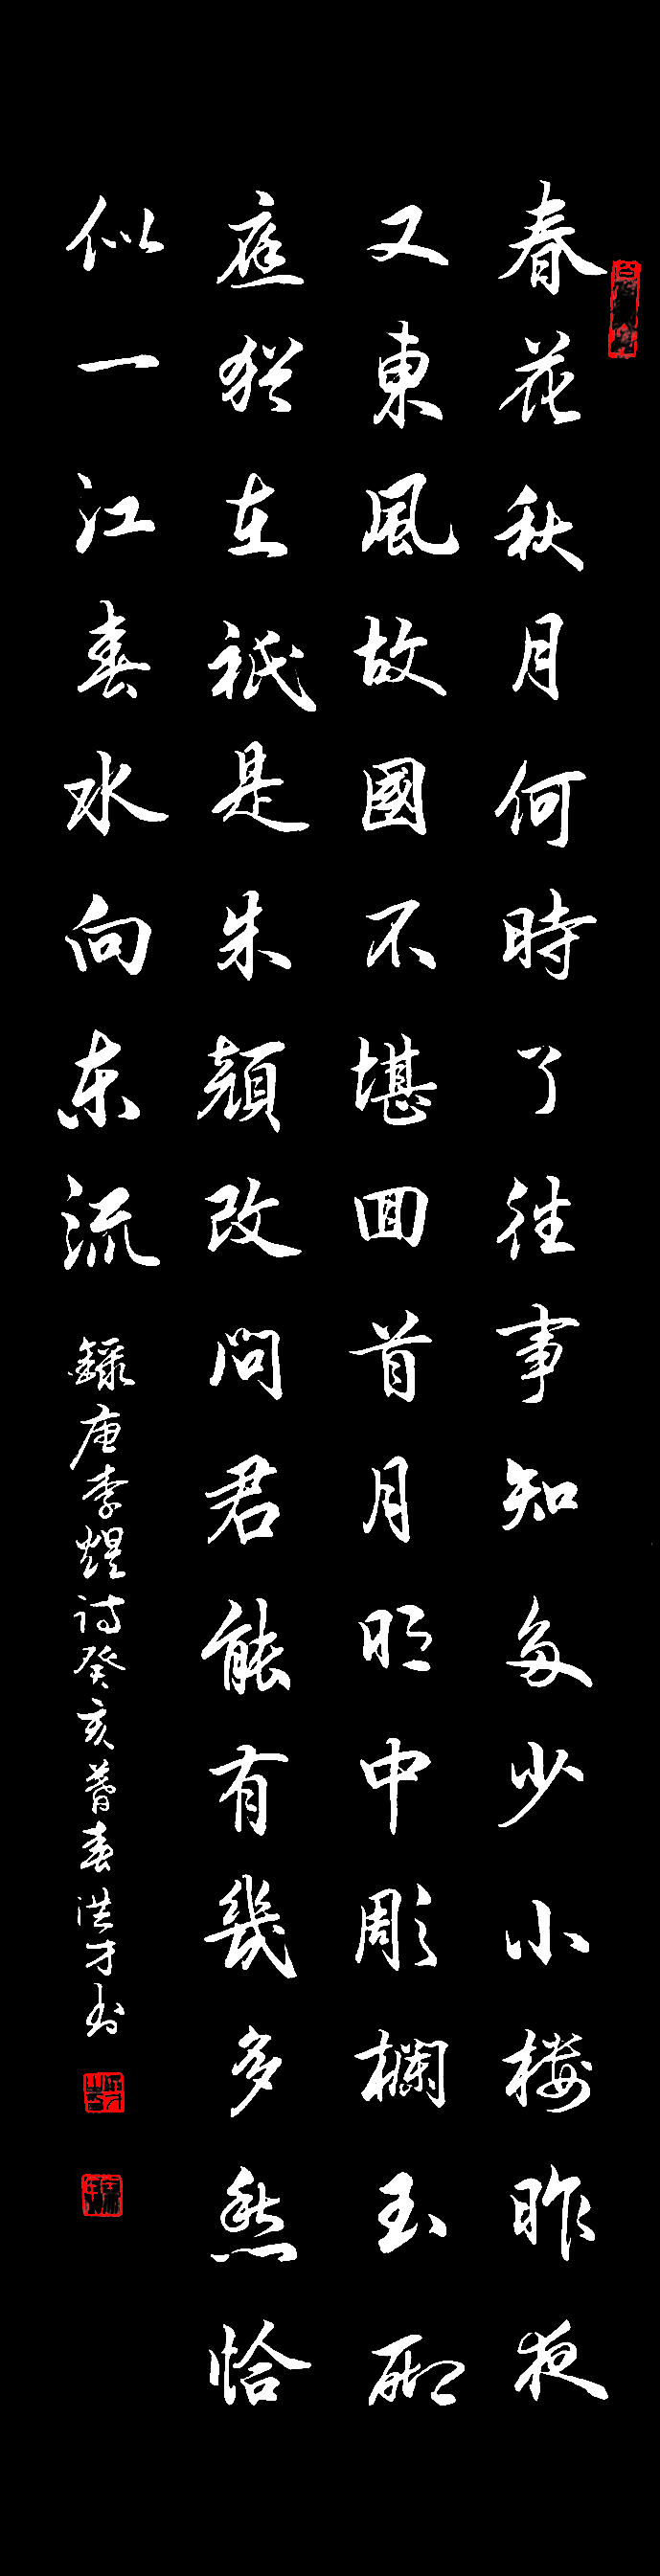 春花秋月何時了往事知多少小楼昨夜
又東風故國不堪囬首月明中彫欄玉砌
應猶在祇是朱顔改問君能有幾多愁恰
似一江春水向东流
錄唐李煜诗癸亥暮春洪才书